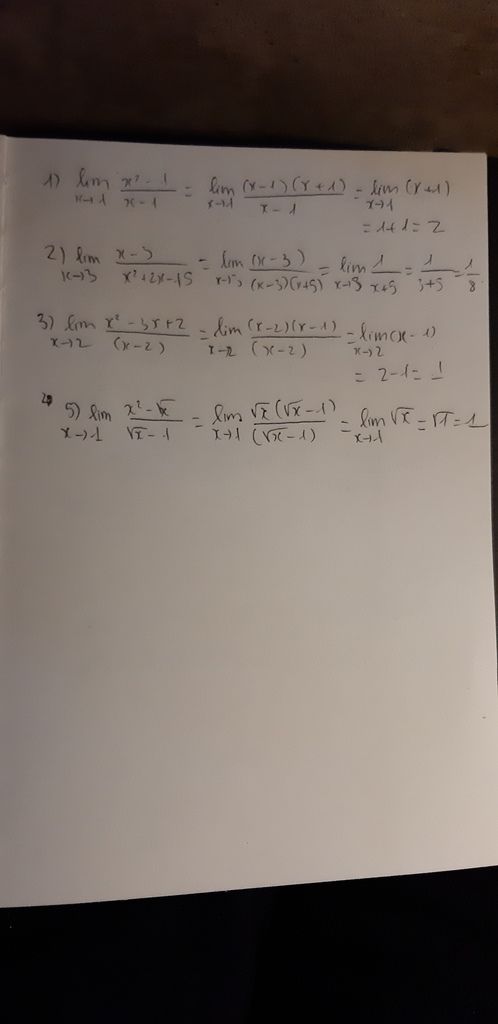 1) lim x→1 (x² - 1)/(x - 1) = lim x→1 (x-1)(x+1)/(x-1) = lim x→1 (x+1)
= 1+1 = 2
2) lim x→3 (x-3)/(x²+2x-15) = lim x→3 (x-3)/((x-3)(x+5)) = lim x→3 1/(x+5) = 1/(3+5) = 1/8
3) lim x→2 (x² - 3x+2)/(x-2) = lim x→2 (x-2)(x-1)/(x-2) = lim x→2 (x-1)
= 2-1 = 1
5) lim x→1 (x²-√x)/(√x-1) = lim x→1 √x(√x-1)/(√x-1) = lim x→1 √x = √1 = 1